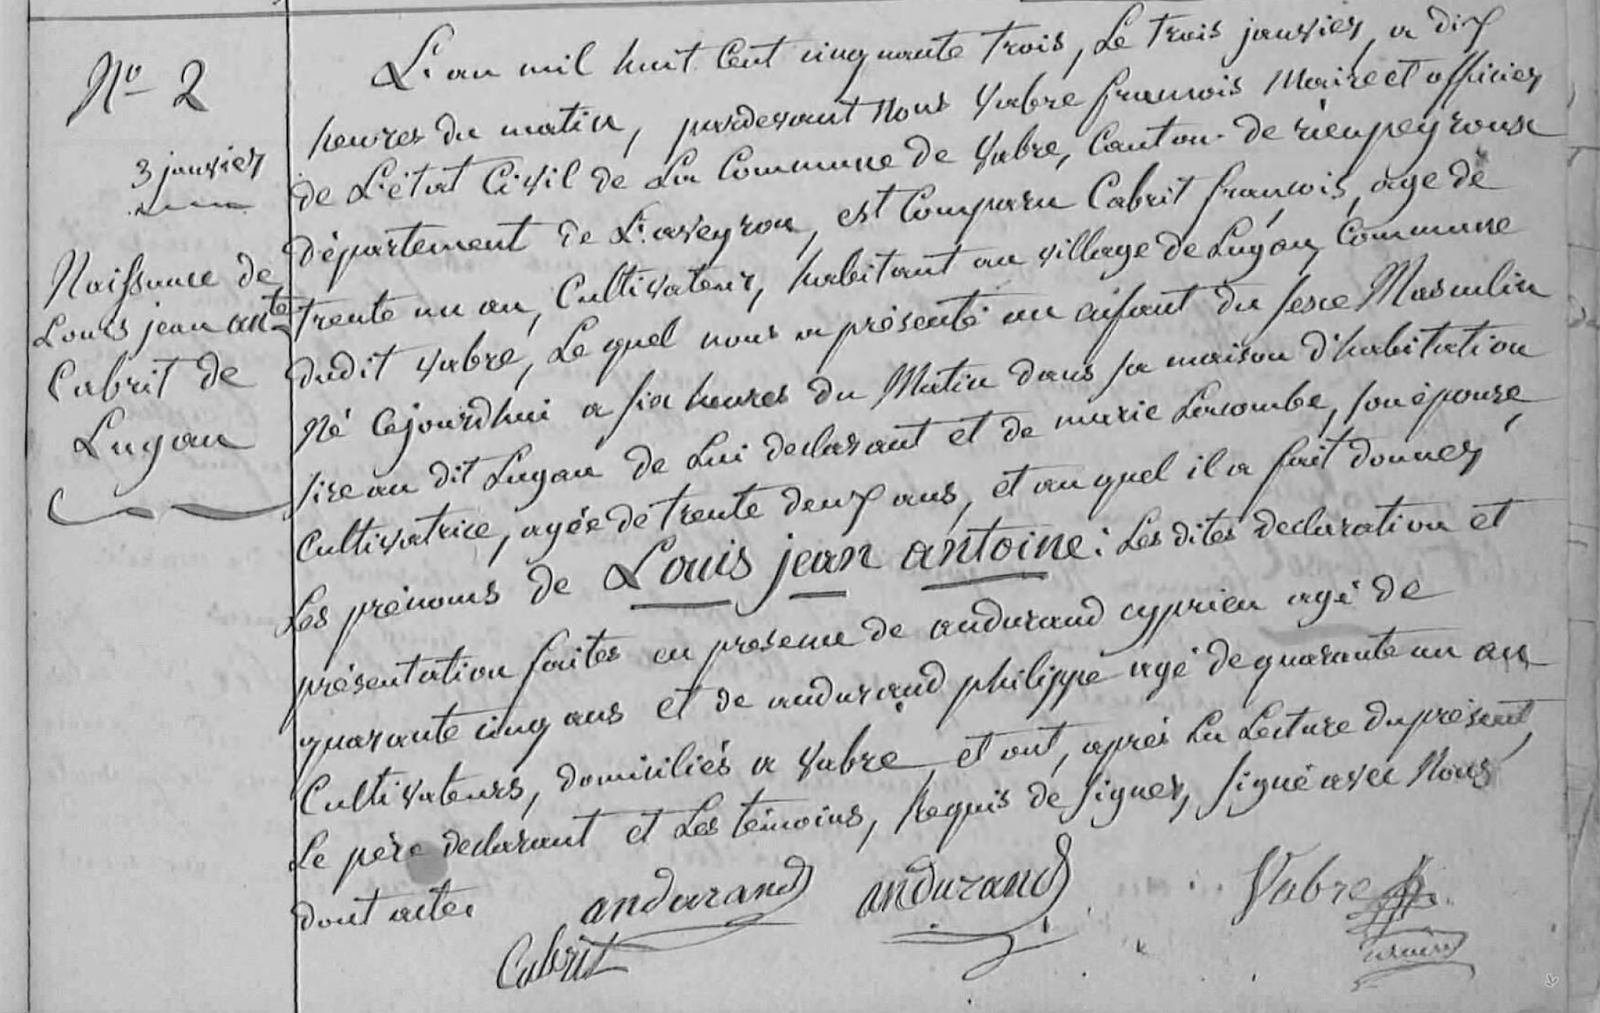 Nº 2
3 janvier
Naissance de
Louis jean ante
Cabrit de
Lugan
L'an mil huit Cent cinquante trois, Le trois janvier, a dix
heures du matin, pardevant Nous Vabre françois Maire et officier
de L'état Civil de La Commune de Vabre, Canton de rieupeyroux
département de L'aveyron, est Comparu Cabrit françois, age de
trente un an, Cultivateur, habitant au village de Lugan, Commune
dudit Vabre, Le quel nous a présenté un enfant du sexe Masculin
Né Cejourdhui a six heures du Matin dans sa maison d'habitation
sire au dit Lugan de Lui declarant et de marie Lacombe, son épouse,
Cultivatrice, agée de trente deux ans, et au quel il a fait donner
Les prénoms de Louis jean antoine : Les dites declaration et
présentation faites en presence de andurand cyprien agé de
quarante cinq ans et de andurand philippe agé de quarante un an
Cultivateurs, domiciliés a Vabre, et ont, après La Lecture du présent,
Le père declarant et Les témoins, Requis de signer, signé avec Nous
dont acte.
andurand andurand Vabre
Cabrit maire